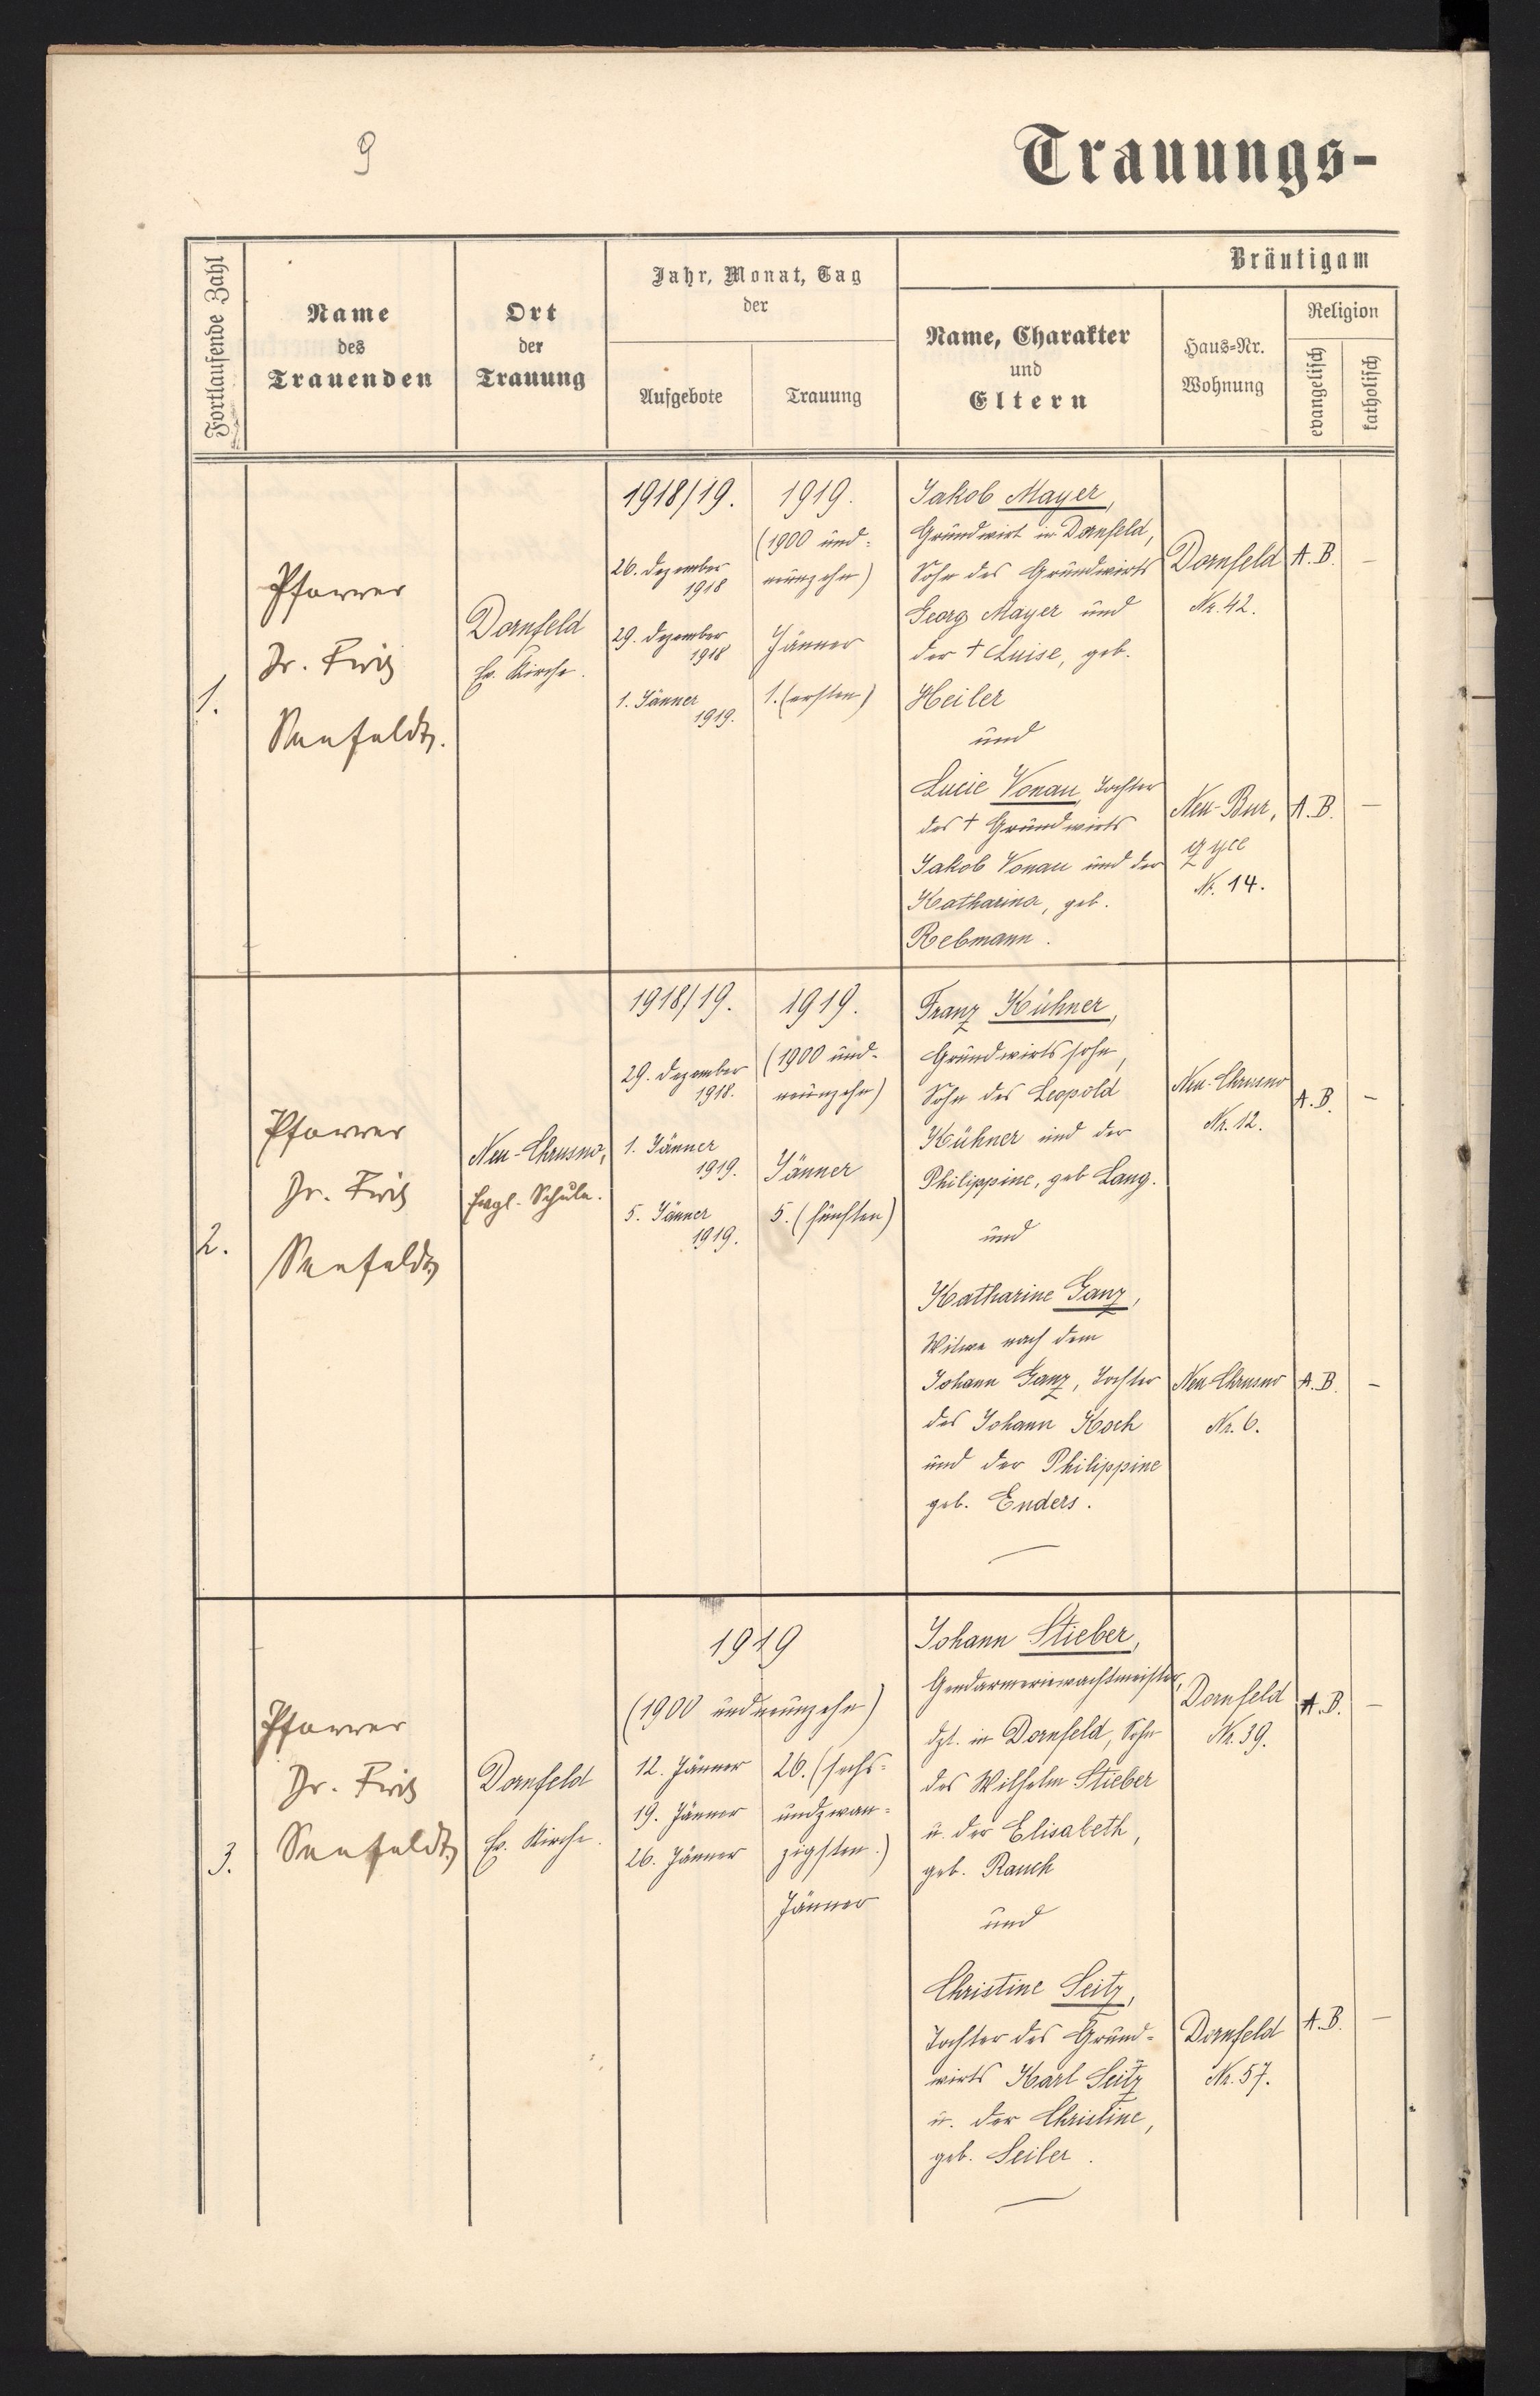 9
Trauungs-
Fortlaufende Zahl
Name
des
Trauenden
Ort
der
Trauung
Jahr, Monat, Tag
der
Aufgebote
Trauung
Bräutigam
Name, Charakter
und
Eltern
Haus=Nr.
Wohnung
Religion
evangelisch
katholisch
1.
Pfarrer
Dr. Fritz
Seefeldt.
Dornfeld
Ev. Kirche.
1918/19.
26. Dezember
1918
29. Dezember
1918
1. Jänner
1919.
1919.
(1900 und=
neunzehn)
Jänner
1. (ersten)
Jakob Mayer,
Grundwirt in Dornfeld,
Sohn des Grundwirts
Georg Mayer und
der † Luise, geb.
Heiler
und
Lucie Vonau, Tochter
des † Grundwirts
Jakob Vonau und der
Katharina, geb.
Rebmann.
Dornfeld
Nr. 42.
A. B.
—
Neu-Bur,
Nr. 14.
A. B.
—
2.
Pfarrer
Dr. Fritz
Seefeldt
Neu-Chrusno,
Evgl. Schule.
1918/19.
29. Dezember
1918.
1. Jänner
1919.
5. Jänner
1919.
1919.
(1900 und=
neunzehn)
Jänner
5. (fünften)
Franz Kühner,
Grundwirtssohn,
Sohn des Leopold
Kühner und der
Philippine, geb Lang.
und
Katharine Ganz,
Witwe nach dem
Johann Ganz, Tochter
des Johann Koch
und der Philippine
geb. Enders.
Neu-Chrusno
Nr. 12.
A. B.
—
Neu-Chrusno
Nr. 6.
A. B.
—
3.
Pfarrer
Dr. Fritz
Seefeldt
Dornfeld
Ev. Kirche.
1919
(1900 undneunzehn)
12. Jänner
19. Jänner
26. Jänner
26. (sechs=
undzwan=
zigsten.)
Jänner
Johann Stieber,
Gendarmeriewachtmeister,
dzt. in Dornfeld, Sohn
des Wilhelm Stieber
u. der Elisabeth,
geb. Rauch
und
Christine Seitz,
Tochter des Grund=
wirts Karl Seitz
u. der Christine,
geb. Seiler.
Dornfeld
Nr. 39.
A. B.
—
Dornfeld
Nr. 57.
A. B.
—